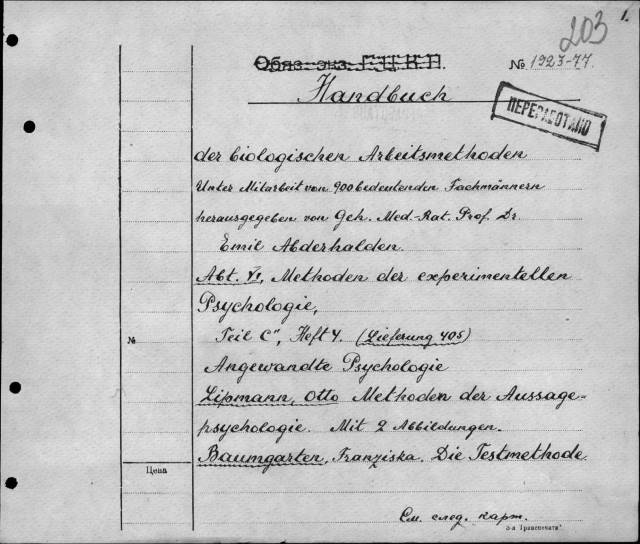 203
1.
Обяз. экз. Г.Ц.К.П.
№ 1923-77.
Handbuch
ПЕРЕРАБОТАНО
der biologischen Arbeitsmethoden
Unter Mitarbeit von 900 bedeutenden Fachmännern
herausgegeben von Geh. Med.-Rat. Prof. Dr.
Emil Abderhalden.
Abt. VI, Methoden der experimentellen
Psychologie,
Teil C", Heft 4. (Lieferung 405)
№
Angewandte Psychologie
Lipmann, Otto Methoden der Aussage-
psychologie. Mit 2 Abbildungen.
Baumgarten, Franziska. Die Testmethode
Цена
См. след. карт.
3-я Транспечати"